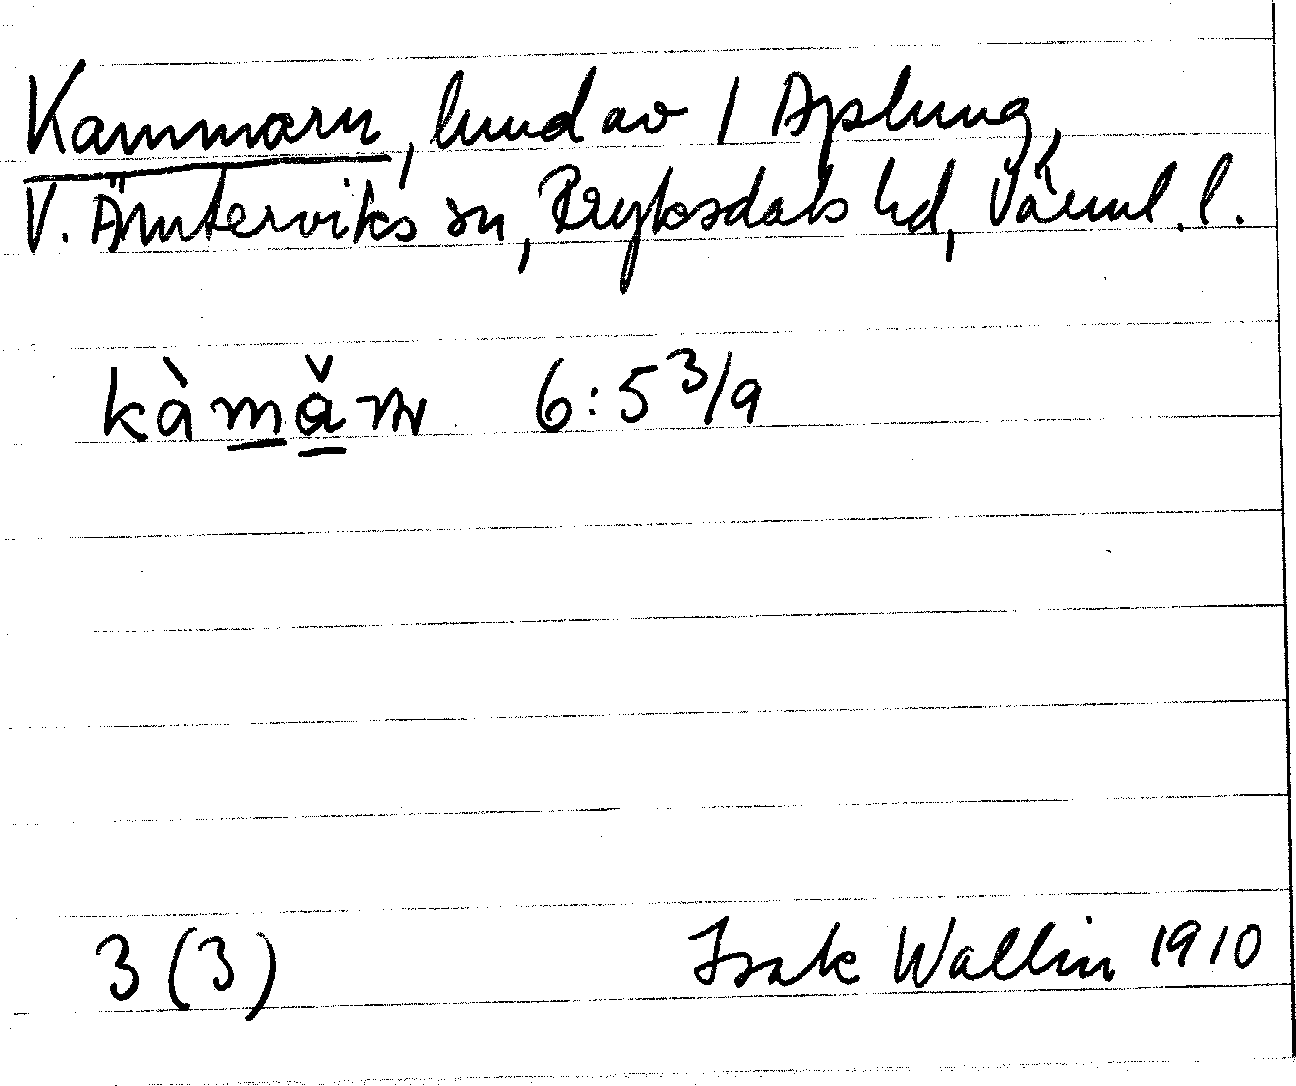 Kammarn, hmd av 1 Aplung,
V. Ämterviks sn, Fryksdals hd, Värml. l.
kàmǎn 6:5 3/9
3 (3) Isak Wallin 1910